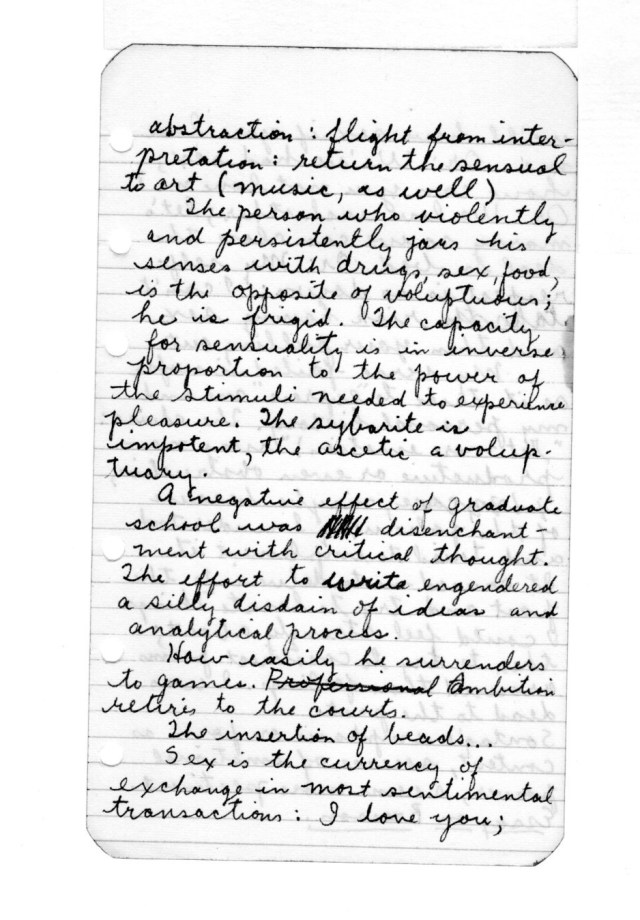 abstraction: flight from inter-
pretation: return the sensual
to art (music, as well)
The person who violently
and persistently jars his
senses with drugs, sex, food,
is the opposite of voluptuous;
he is frigid. The capacity
for sensuality is in inverse
proportion to the power of
the stimuli needed to experience
pleasure. The sybarite is
impotent, the ascetic a volup-
tuary.
A negative effect of graduate
school was disenchant-
ment with critical thought.
The effort to write engendered
a silly disdain of ideas and
analytical process.
How easily he surrenders
to games. Professional Ambition
retires to the courts.
The insertion of beads...
Sex is the currency of
exchange in most sentimental
transactions: I love you;